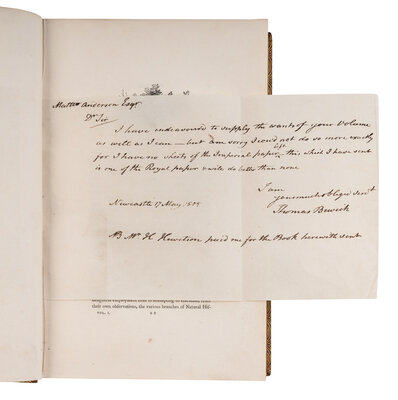 Matth Anderson Esqr
Dr Sir
I have endeavoured to supply the wants of your Volume
as well as I can — but am sorry I could not do so more exactly
for I have no sheets of the Imperial paper left this which I have sent
is one of the Royal paper & will do better than none
I am
your much obliged servt
Thomas Bewick
Newcastle 17 May 1808
NB Mr H Hewitson paid me for the Book herewith sent
their own observations, the various branches of Natural His-
VOL. I.